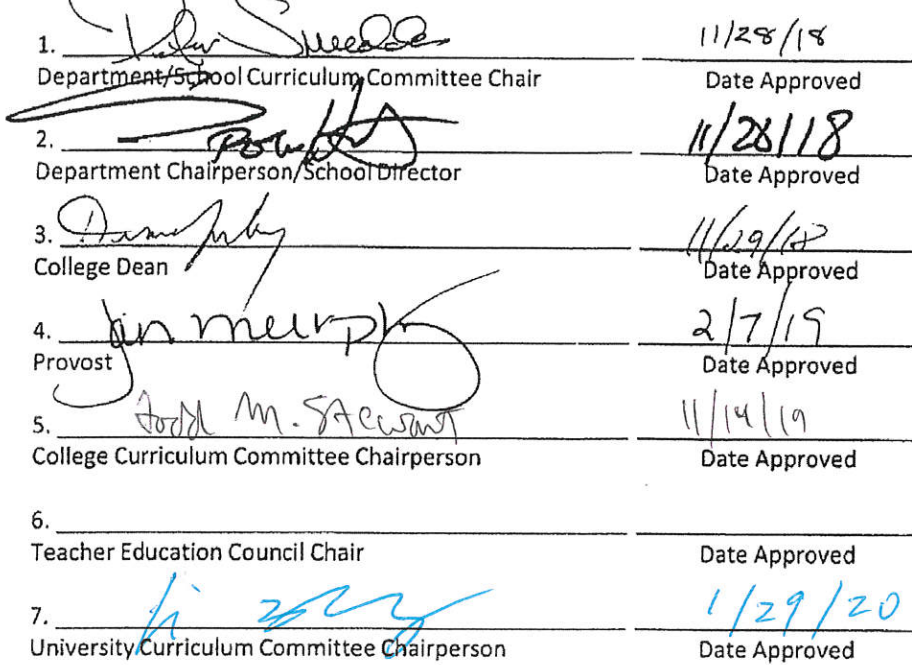 1. 11/28/18
Department/School Curriculum Committee Chair Date Approved
2. 11/28/18
Department Chairperson/School Director Date Approved
3. 11/29/18
College Dean Date Approved
4. Jan Murphy 2/7/19
Provost Date Approved
5. Todd M. Stewart 11/14/19
College Curriculum Committee Chairperson Date Approved
6.
Teacher Education Council Chair Date Approved
7. 1/29/20
University Curriculum Committee Chairperson Date Approved